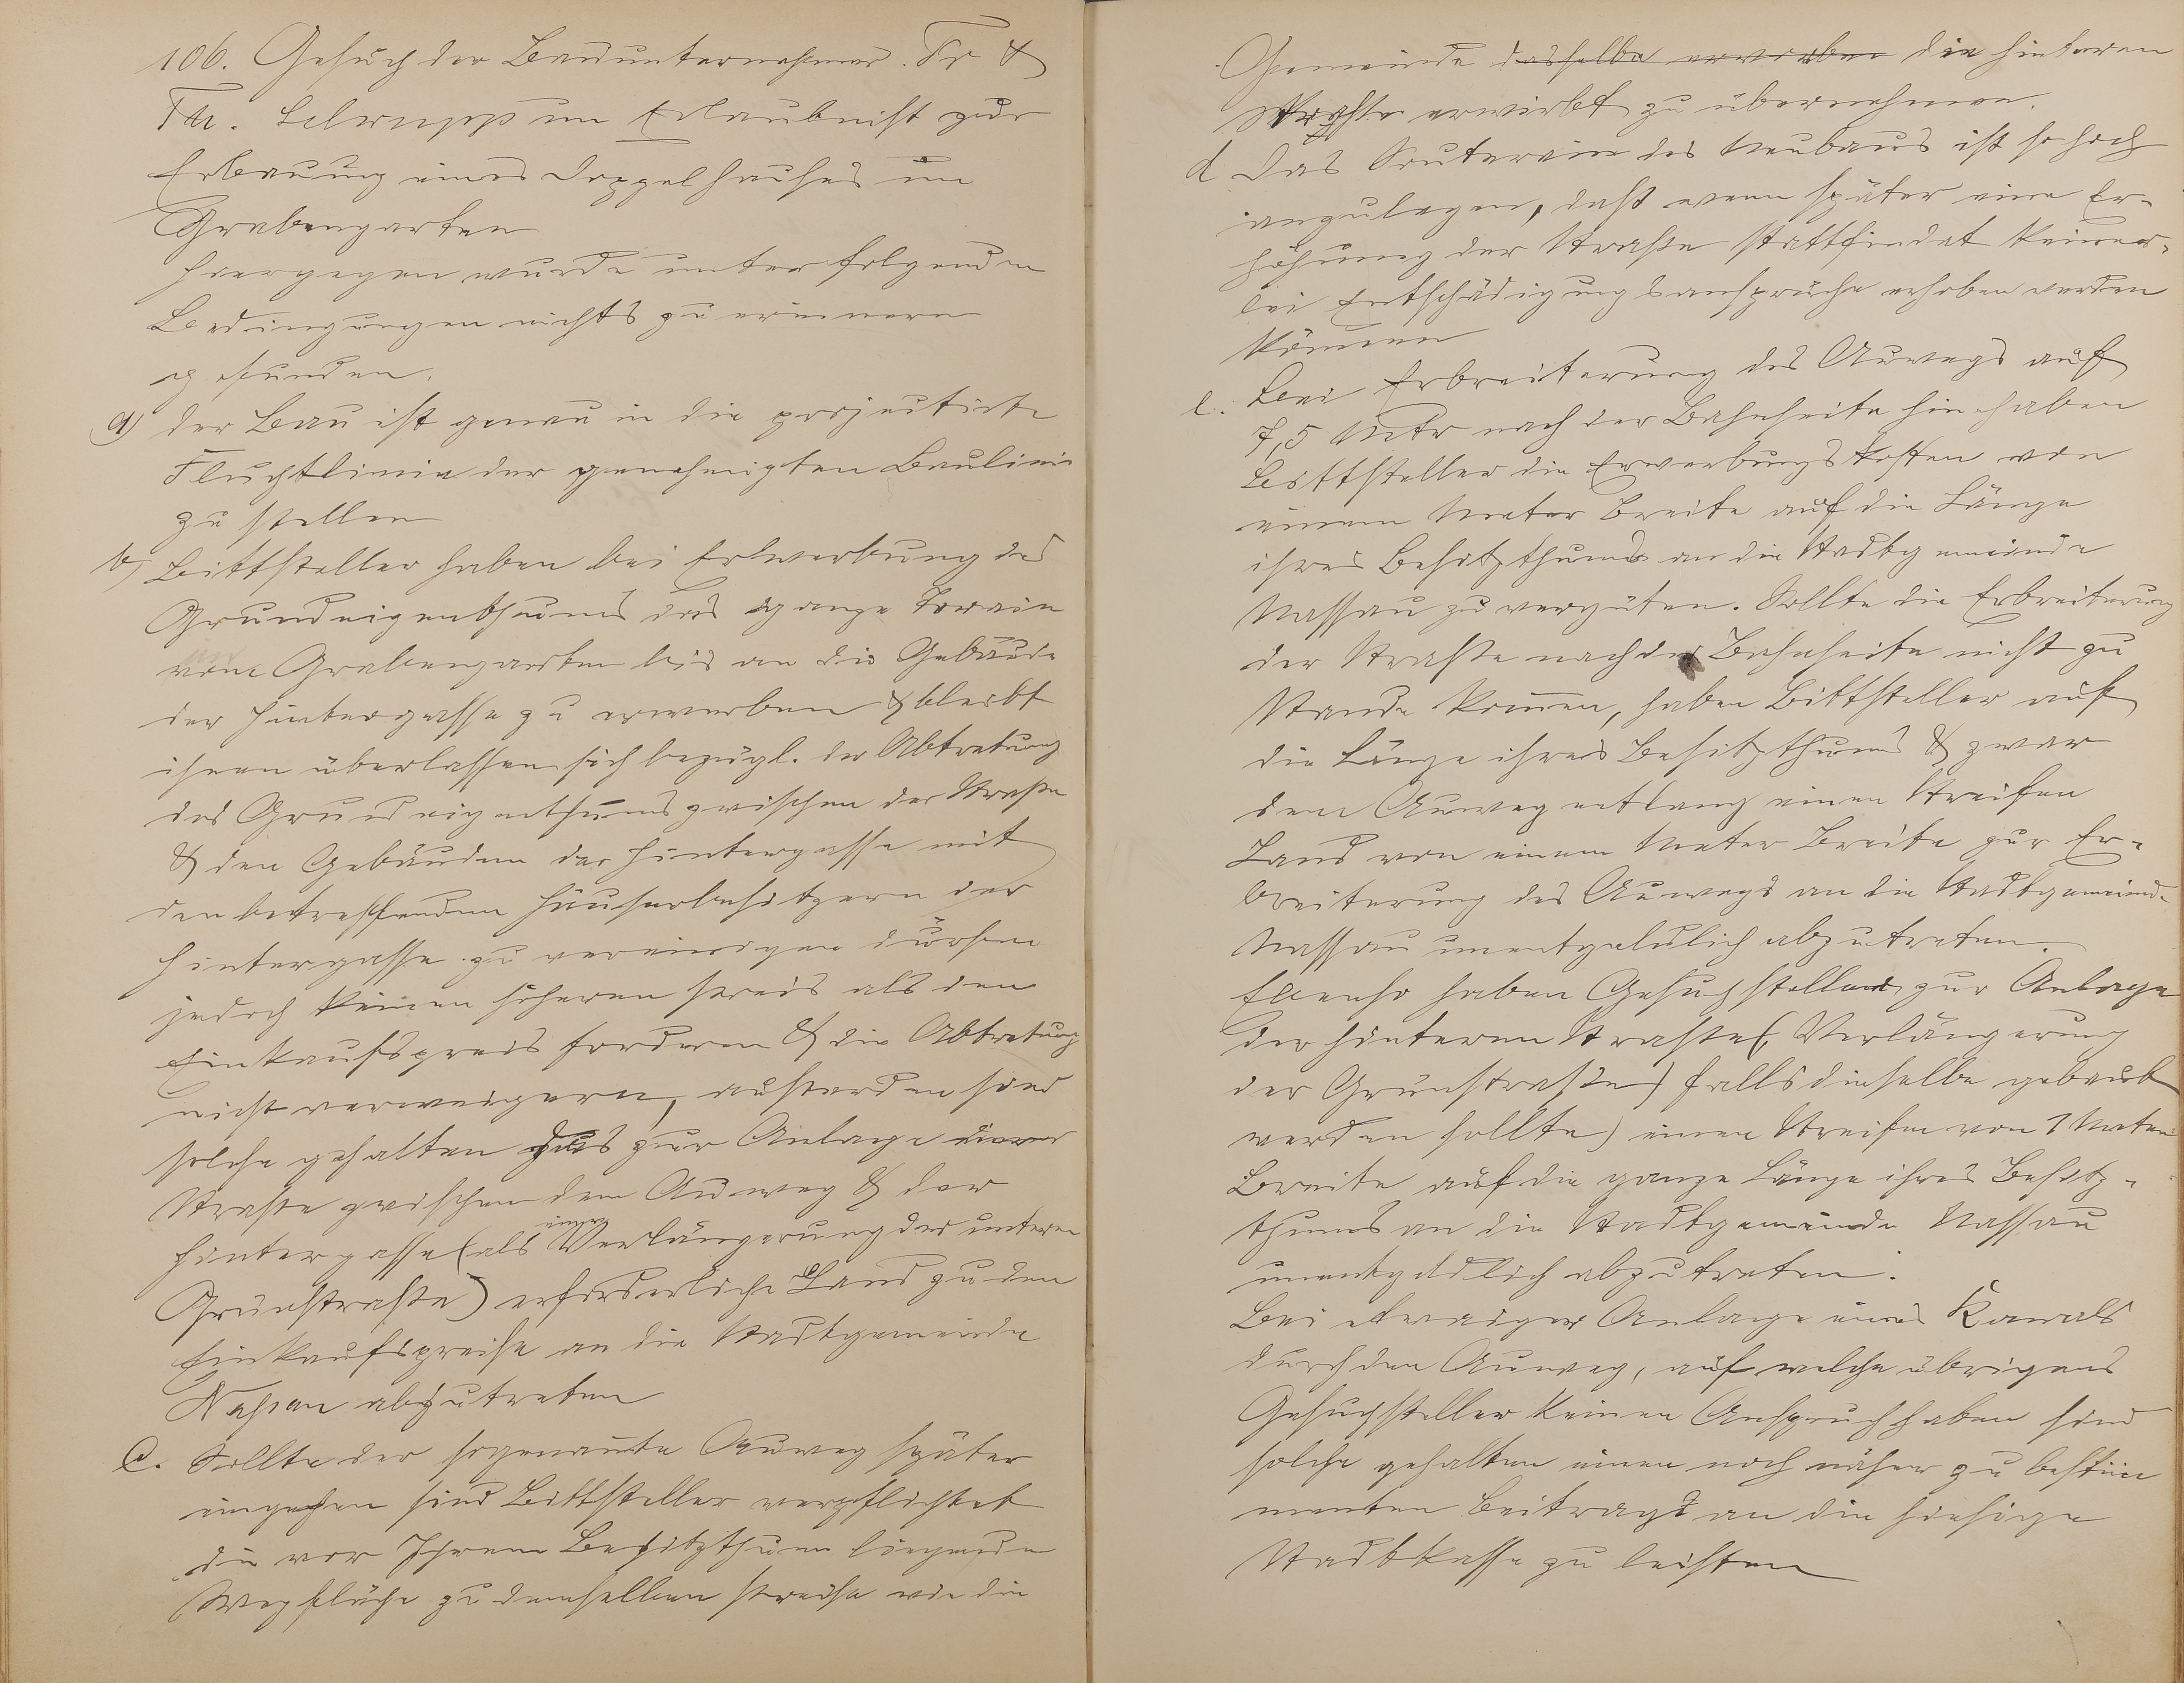 106. Gesuch der Bauunternehmer. Fr &
Th. Schrupp um Erlaubnißt zur
Erbauung eines Doppelhauses im
Grabengarten
Hiergegen wurde unter folgenden
Bedingungen nichts zu erinnern
gefunden.
a) der Bau ist genau in die projectirte
Fluchtlinie der genehmigten Baulinie
zu stellen
b) Bittsteller haben bei Erwerbung des
Grundeigenthums das ganze Terrain
vom Grabengarten bis an die Gebäude
der Hintergasse zu erwerben & bleibt
ihnen überlassen sich bezügl. der Abtretung
des Grundeigenthums zwischen der Straße
& den Gebäuden der Hintergasse mit
den betreffenden Häuserbesitzern der
Hintergasse zu vereinigen dürfen
jedoch keinen höheren Preis als den
Einkaufspreis fordern & die Abtretung
nicht verweigern, außerdem sind
solche gehalten das zur Anlage einer
Straße zwischen dem Auweg & der
Hintergasse (als Verlängerung der unteren
Grünstraße) erforderliche Land zu den
Einkaufspreise an die Stadtgemeinde
Nassau abzutreten
C. Sollte der sogenannte Auweg später
eingehen sind Bittsteller verpflichtet
die vor Ihrem Besitzthum liegende
Wegfläche zu demselben Preise wie die
Gemeinde dasselbe erworben die hinteren
Straße erwirbt zu übernehmen.
d Das Souterain des Neubaus ist so hoch
anzulegen, daß wenn später eine Er-
höhung der Straße stattfindet keiner-
lei Entschädigungsansprüche erhoben werden
können
e. Bei Erbreiterung des Auwegs auf
7,5 Mtr nach der Bahnseite hin haben
Bittsteller die Erwerbungskosten von
einem Meter Breite auf die Länge
ihres Besitzthums an die Stadtgemeinde
Nassau zu vergüten. Sollte die Erbreiterung
der Straße nach der Bahnseite nicht zu
Stande kommen, haben Bittsteller auf
die Länge ihres Besitzthums & zwar
den Auweg entlang einen Streifen
Land von einem Meter Breite zur Er-
breiterung des Auwegs an die Stadtgemeinde
Nassau unentgeldlich abzutreten.
Ebenso haben Gesuchsteller zur Anlage
der hinteren Straße (Verlängerung
der Grünstraße) falls dieselbe gebaut
werden sollte) einen Streifen von 1 Meter
Breite auf die ganze Länge ihres Besitz-
thums an die Stadtgemeinde Nassau
unentgeldlich abzutreten.
Bei etwaiger Anlage eines Kanals
durch den Auweg, auf welche übrigens
Gesuchsteller keinen Anspruch haben sind
solche gehalten einen noch näher zu bestim
menten Beitrag an die hiesige
Stadtkasse zu leisten